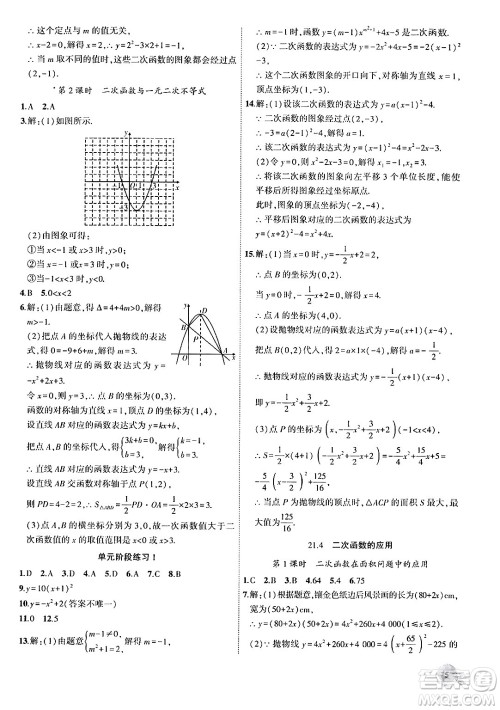 这个定点与 m 的值无关.
∴x-2=0,解得 x=2,y=-1.
∴当 m 取不同的值时,这些二次函数的图象都过点
(2,-1).
*第 2 课时 二次函数与一元二次不等式
1.A 2.A
3.解:(1)如图所示.
(2)由图象可得:
①当 x<-1 或 x>3 时,y>0;
②当 x<-2 或 x>4 时,y>5;
③当-1<x<3 时,y<0.
4.B 5.0<x<2
6.解:(1)由题意,得 Δ=4+4m>0,解得
m>-1.
(2)把点 A 的坐标代入抛物线的表达式,
得 0=-9+6+m,解得 m=3.
∴抛物线对应的函数表达式为 y=
-x²+2x+3.
令 x=0,得 y=3,∴点 B 的坐标为(0,3).
函数的对称轴为直线 x=1,顶点 D 的坐标为(1,4),
设直线 AB 对应的函数表达式为 y=kx+b,
将点 A,B 的坐标代入,得{3k+b=0, b=3, 解得{k=-1, b=3.
∴直线 AB 对应的函数表达式为 y=-x+3.
当 x=1 时,y=2,∴点 P 的坐标为(1,2).
则 PD=4-2=2,S△ABD=1/2 PD·OA=1/2×2×3=3.
(3)点 A,B 的横坐标分别为 3,0,一次函数值大于二次
函数值的范围为 x<0 或 x>3.
单元阶段练习 Ⅰ
1.D 2.A 3.C 4.C 5.D 6.D 7.B 8.D
9.y=10(x+1)²
10.y=x²+2(答案不唯一)
11.0 12.5
13.解:(1)由题意得{m-1≠0, m²+1=2,
∴m=-1,∴当 m=-1 时,此函数是二次函数.
(2)∵二次函数的表达式为 y=-2x²-2x-1,
∴这个二次函数图象的开口方向向下,对称轴为直线 x=
顶点坐标为
14.解:(1)设该二次函数的表达式为 y=a(x+1)(x-3),
∵二次函数的图象过点(2,-3),
∴-3=a(2+1)(2-3),解得 a=1.
∴该二次函数的表达式为 y=x²-2x-3.
(2)∵抛物线与 x 轴交于点(-1,0),(3,0),
∴将该二次函数的图象向左平移 3 个单位长度,能使
平移后图象经过坐标原点.
此时,该图象与 x 轴交于(0,0)和(-4,0).
∴平移后图象对应的函数表达式为
y=x(x+4)=x²+4x.
15.解:(1)当 x=0 时,y=-1/2 x+2=2,
∴点 B 的坐标为(0,2).
当 y=0 时,0=-1/2 x+2,解得 x=4,
∴点 A 的坐标为(4,0).
(2)设抛物线对应的函数表达式为 y=a(x+1)(x-4),
把点 B(0,2)的坐标代入,得 2=-4a,解得 a=-1/2.
∴抛物线对应的函数表达式为 y=-1/2(x+1)(x-4),
即 y=-1/2 x²+3/2 x+2.
(3)点 P 的坐标为(x,-1/2 x²+3/2 x+2)(-1<x<4)
∴当点 P 为抛物线的顶点时,△ACP 的面积最大,最大
值为 125/16.
21.4 二次函数的应用
第 1 课时 二次函数在面积问题中的应用
1.C 2.B 3.A 4.12 5.64 6.75
7.解:(1)根据题意,镶金色纸边后风景画的长为
(80+2x)cm,宽为(50+2x)cm.
∴y=(80+2x)·(50+2x)=4x²+260x+4 000(x>0).
(2)∵抛物线 y=4x²+260x+4 000=4(x+65/2)²-225 的